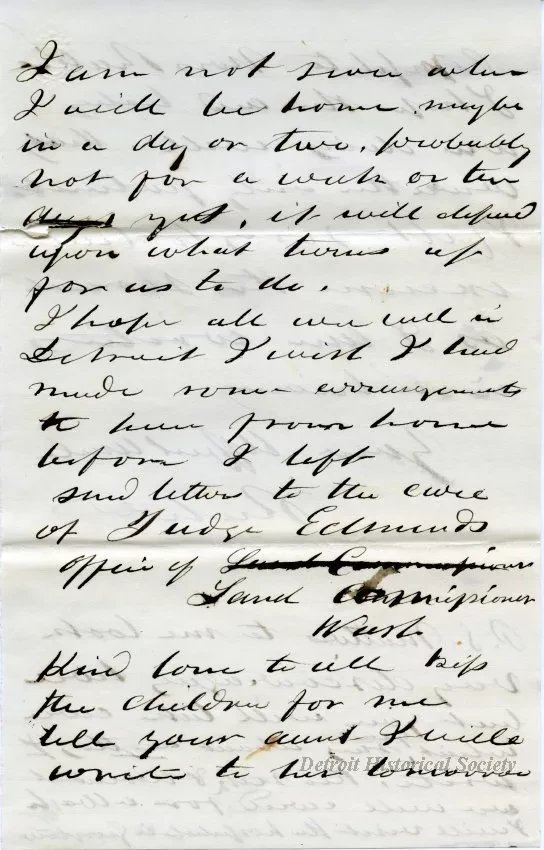 I am not sure when
I will be home maybe
in a day or two, probably
not for a week or ten
days yet, it will depend
upon what turns up
for us to do.
I hope all are well in
Detroit I wish I had
made some arrangements
to hear from home
before I left
send letters to the care
of Judge Edmunds
office of Land Commissioner
Land Commissioner
Wash
Kind love to all kiss
the children for me
tell your aunt I will
write to her tomorrow
Detroit Historical Society